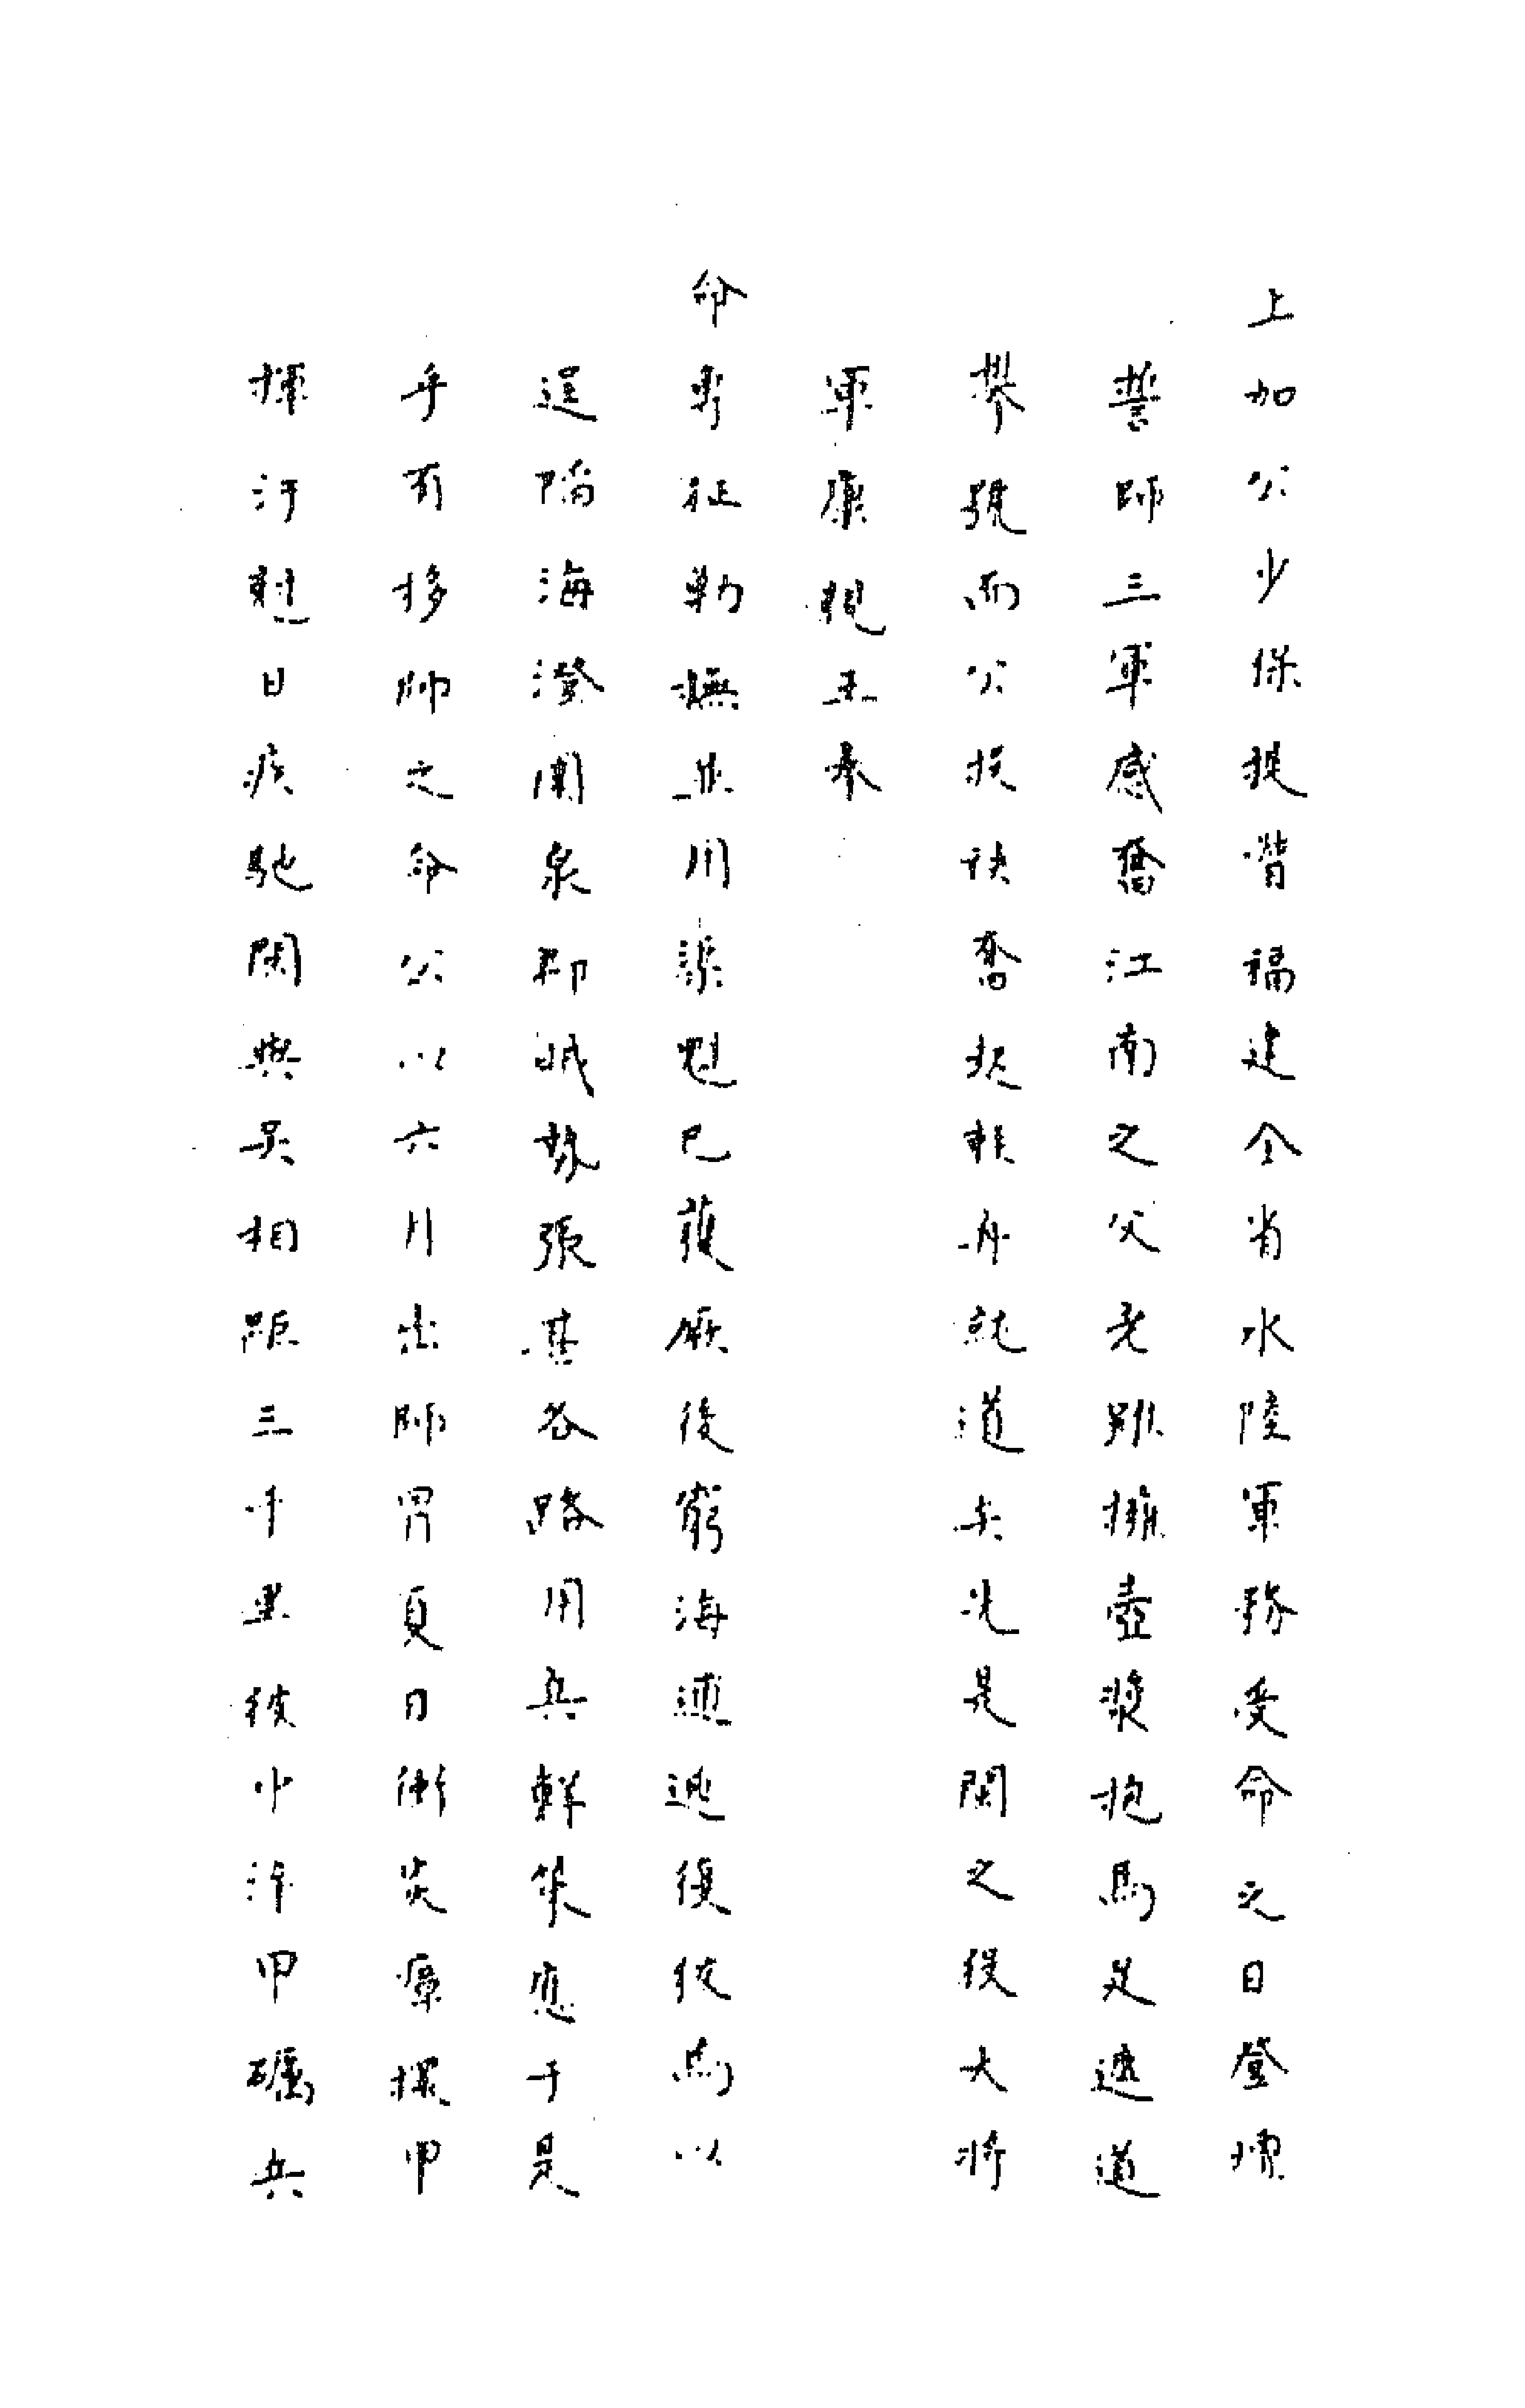 上加公少保提督福建全省水陸軍務受命之日登壇
誓師三軍感奮江南之父老雖擁壺漿抱馬足遮道
攀號而公投袂奮起輕舟就道矣先是閩之役大將
軍康親王奉
命專征勦撫並用渠魁已獲厥後窮海逋逃復彼而以
逞陷海澄闌泉郡岷勢張甚各路用兵鮮策應于是
乎有移師之命公以六月出師冐夏日衝炎瘴擐甲
揮汗尅日疾馳閩與吳相距三千里彼中淬甲礪兵